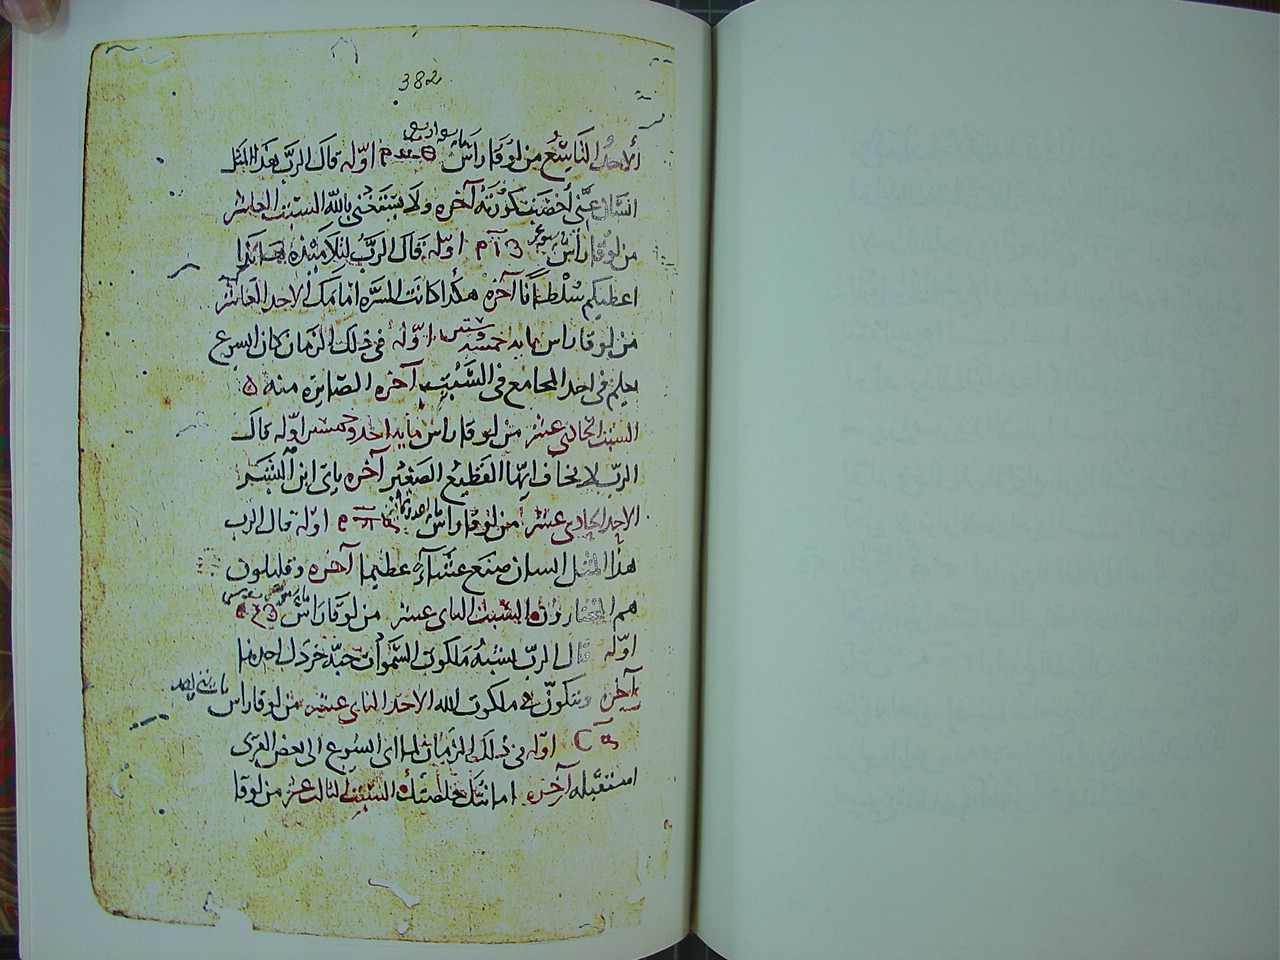 382
الاحد التاسع من لوقا راس اوّله قال الربّ هذا المثل
انسان غني أخصبت كورته آخره ولا يستغني بالله السبت العاشر
من لوقا راس اوّله قال الربُّ لتلاميذه هانذا
اعطيكم سُلْطانًا آخره هكذا كانت المسرّه امامك الاحد العاشر
من لوقا راس مايه اوّله في ذلك الزمان كان ايسوع
يعلم في احد المجامع في السَّبْت آخره الصّايره منه
السبت الحادي عشر من لوقا راس مايه احد وخمسين اوّله قال
الربّ لا تخاف ايّها القطيع الصغير آخره ياتي ابن البشر
الاحد الحادي عشر من لوقا راس اوّله قال الرب
هذا المثل انسان صنع عشاءً عظيما آخره وقليلون
هم المختارون السبت الثاني عشر من لوقا راس
اوّله قال الربّ يشبه ملكوت السّموات حبّة خردل اخدها
آخره وتتكون في ملكوت الله الاحد الثاني عشر من لوقا راس
اوّله في ذلك الزمان لما اتى ايسوع الى بعض القرى
استقبله آخره امانتك خلصتك السبت الثالث عشر من لوقا